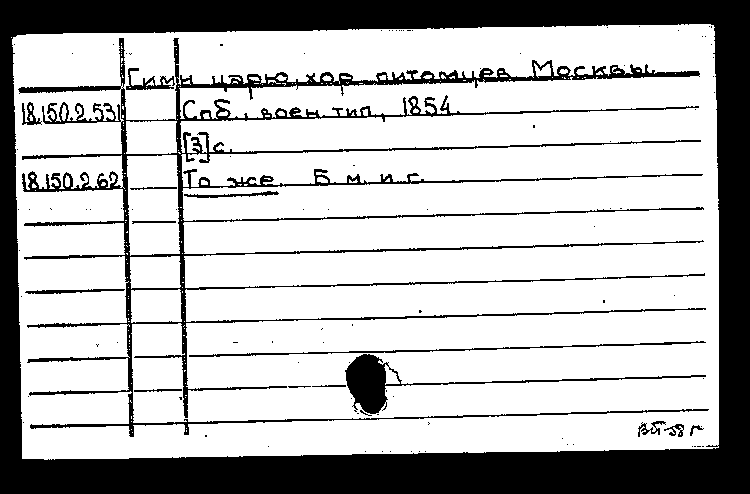 Гимн царю, хор питомцев Москвы.
18.150.2.531 Спб., воен. тип., 1854.
[3]с.
18.150.2.62 То же Б. м. и г.